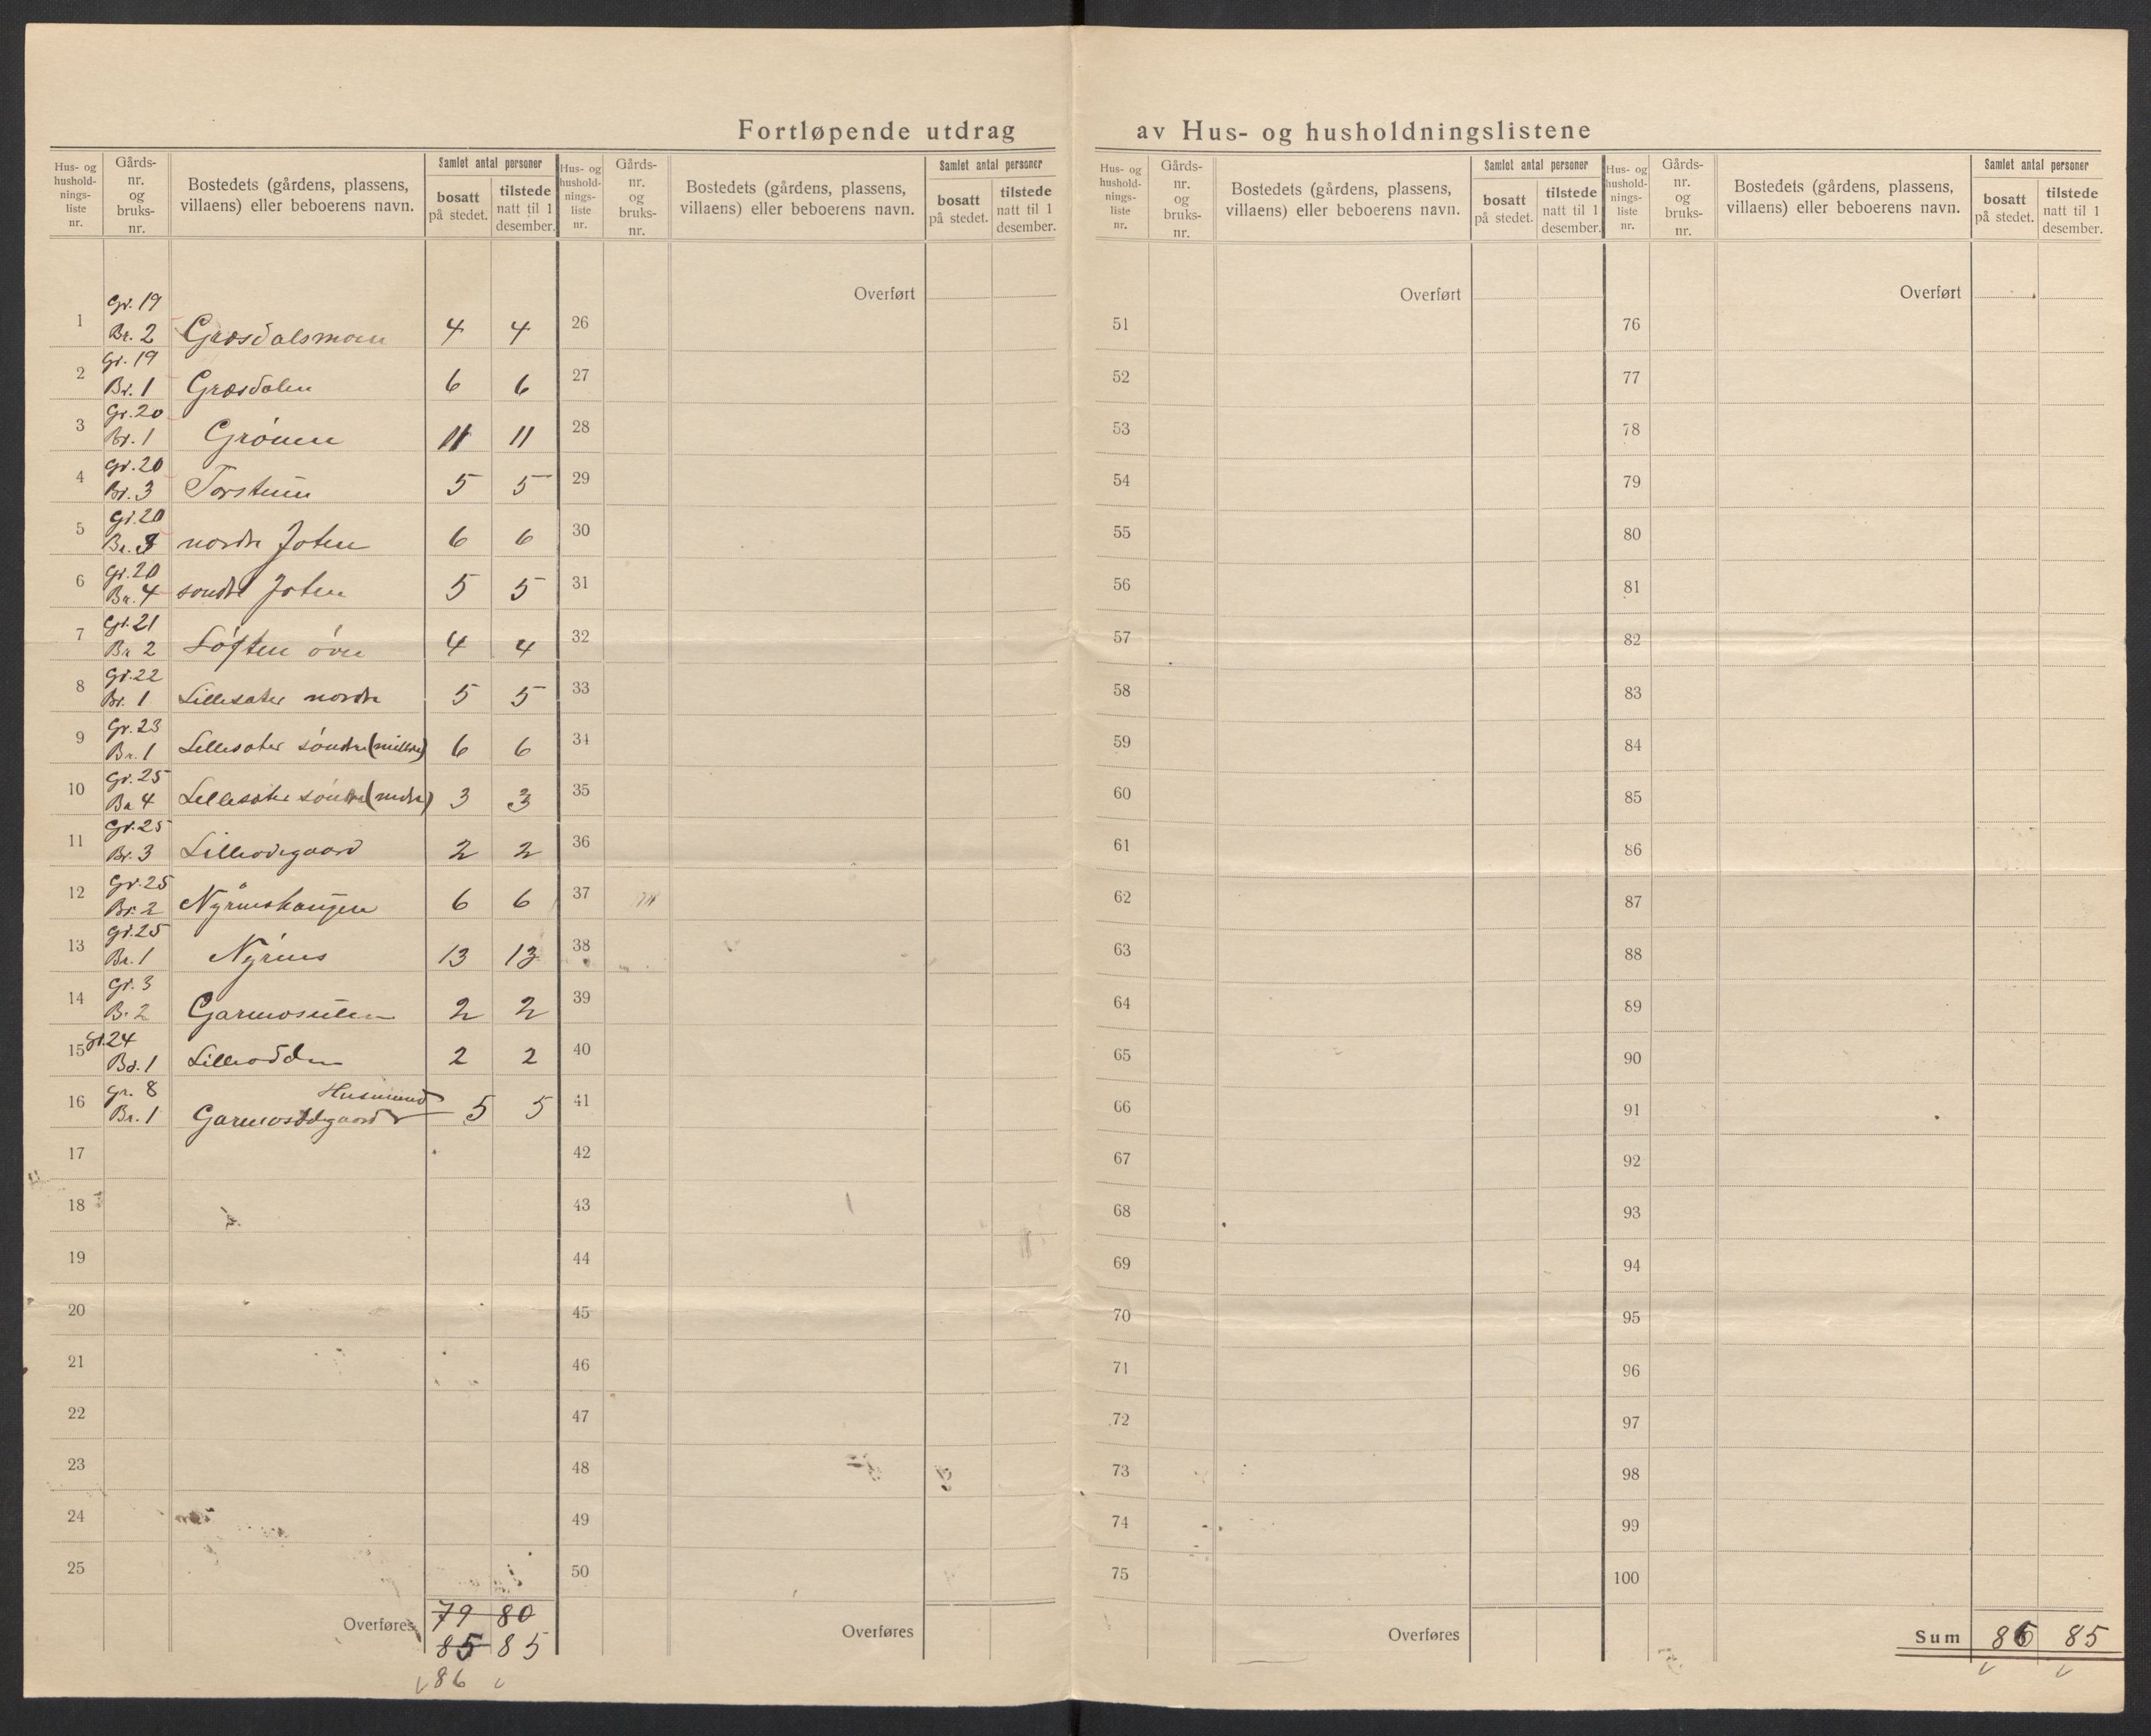 Fortløpende utdrag av Hus- og husholdningslistene
Hus- og hushold-nings-liste nr.
Gårds-nr. og bruks-nr.
Bostedets (gårdens, plassens, villaens) eller beboerens navn.
Samlet antal personer
bosatt på stedet.
tilstede natt til 1 desember.
Hus- og hushold-nings-liste nr.
Gårds-nr. og bruks-nr.
Bostedets (gårdens, plassens, villaens) eller beboerens navn.
Samlet antal personer
bosatt på stedet.
tilstede natt til 1 desember.
Hus- og hushold-nings-liste nr.
Gårds-nr. og bruks-nr.
Bostedets (gårdens, plassens, villaens) eller beboerens navn.
Samlet antal personer
bosatt på stedet.
tilstede natt til 1 desember.
Hus- og hushold-nings-liste nr.
Gårds-nr. og bruks-nr.
Bostedets (gårdens, plassens, villaens) eller beboerens navn.
Samlet antal personer
bosatt på stedet.
tilstede natt til 1 desember.
1 Gr. 19 Br. 2 Græsdalsmoen 4 4
2 Gr. 19 Br. 1 Græsdalen 6 6
3 Gr. 20 Br. 1 Grønen 11 11
4 Gr. 20 Br. 3 Torsteien 5 5
5 Gr. 20 Br. nordre Joten 6 6
6 Gr. 20 Br. 4 søndre Joten 5 5
7 Gr. 21 Br 2 Løften øvre 4 4
8 Gr. 22 Br. 1 Lillesæter nordre 5 5
9 Gr. 23 Br. 1 Lillesæter søndre 6 6
10 Gr. 25 Br 4 Lillesæter søndre (nedre) 3 3
11 Gr. 25 Br. 3 Lilleødegaard 2 2
12 Gr. 25 Br. 2 Nyrnishaugen 6 6
13 Gr. 25 Br. 1 Nyrnis 13 13
14 Gr. 3 Br 2 2 2
15 Gr. 24 Br. 1 Lilleodden 2 2
16 Gr. 8 Br. 1 Husmend Garmosødegaard 5 5
17
18
19
20
21
22
23
24
25
Overføres 79 80
85 85
86
Overført
26
27
28
29
30
31
32
33
34
35
36
37
38
39
40
41
42
43
44
45
46
47
48
49
50
Overføres
Overført
51
52
53
54
55
56
57
58
59
60
61
62
63
64
65
66
67
68
69
70
71
72
73
74
75
Overføres
Overført
76
77
78
79
80
81
82
83
84
85
86
87
88
89
90
91
92
93
94
95
96
97
98
99
100
Sum 86 85